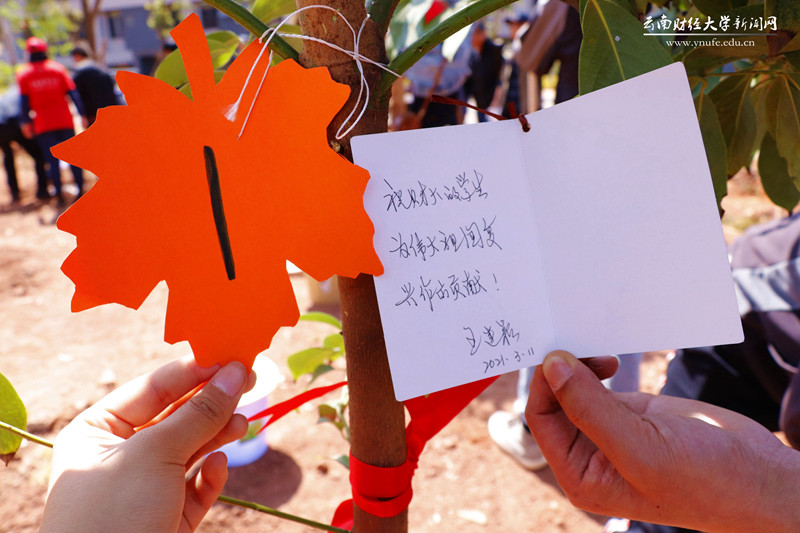 云南财经大学新闻网
www.ynufe.edu.cn
祝财大的学生
为伟大祖国发
兴作出贡献！
2021.3.11